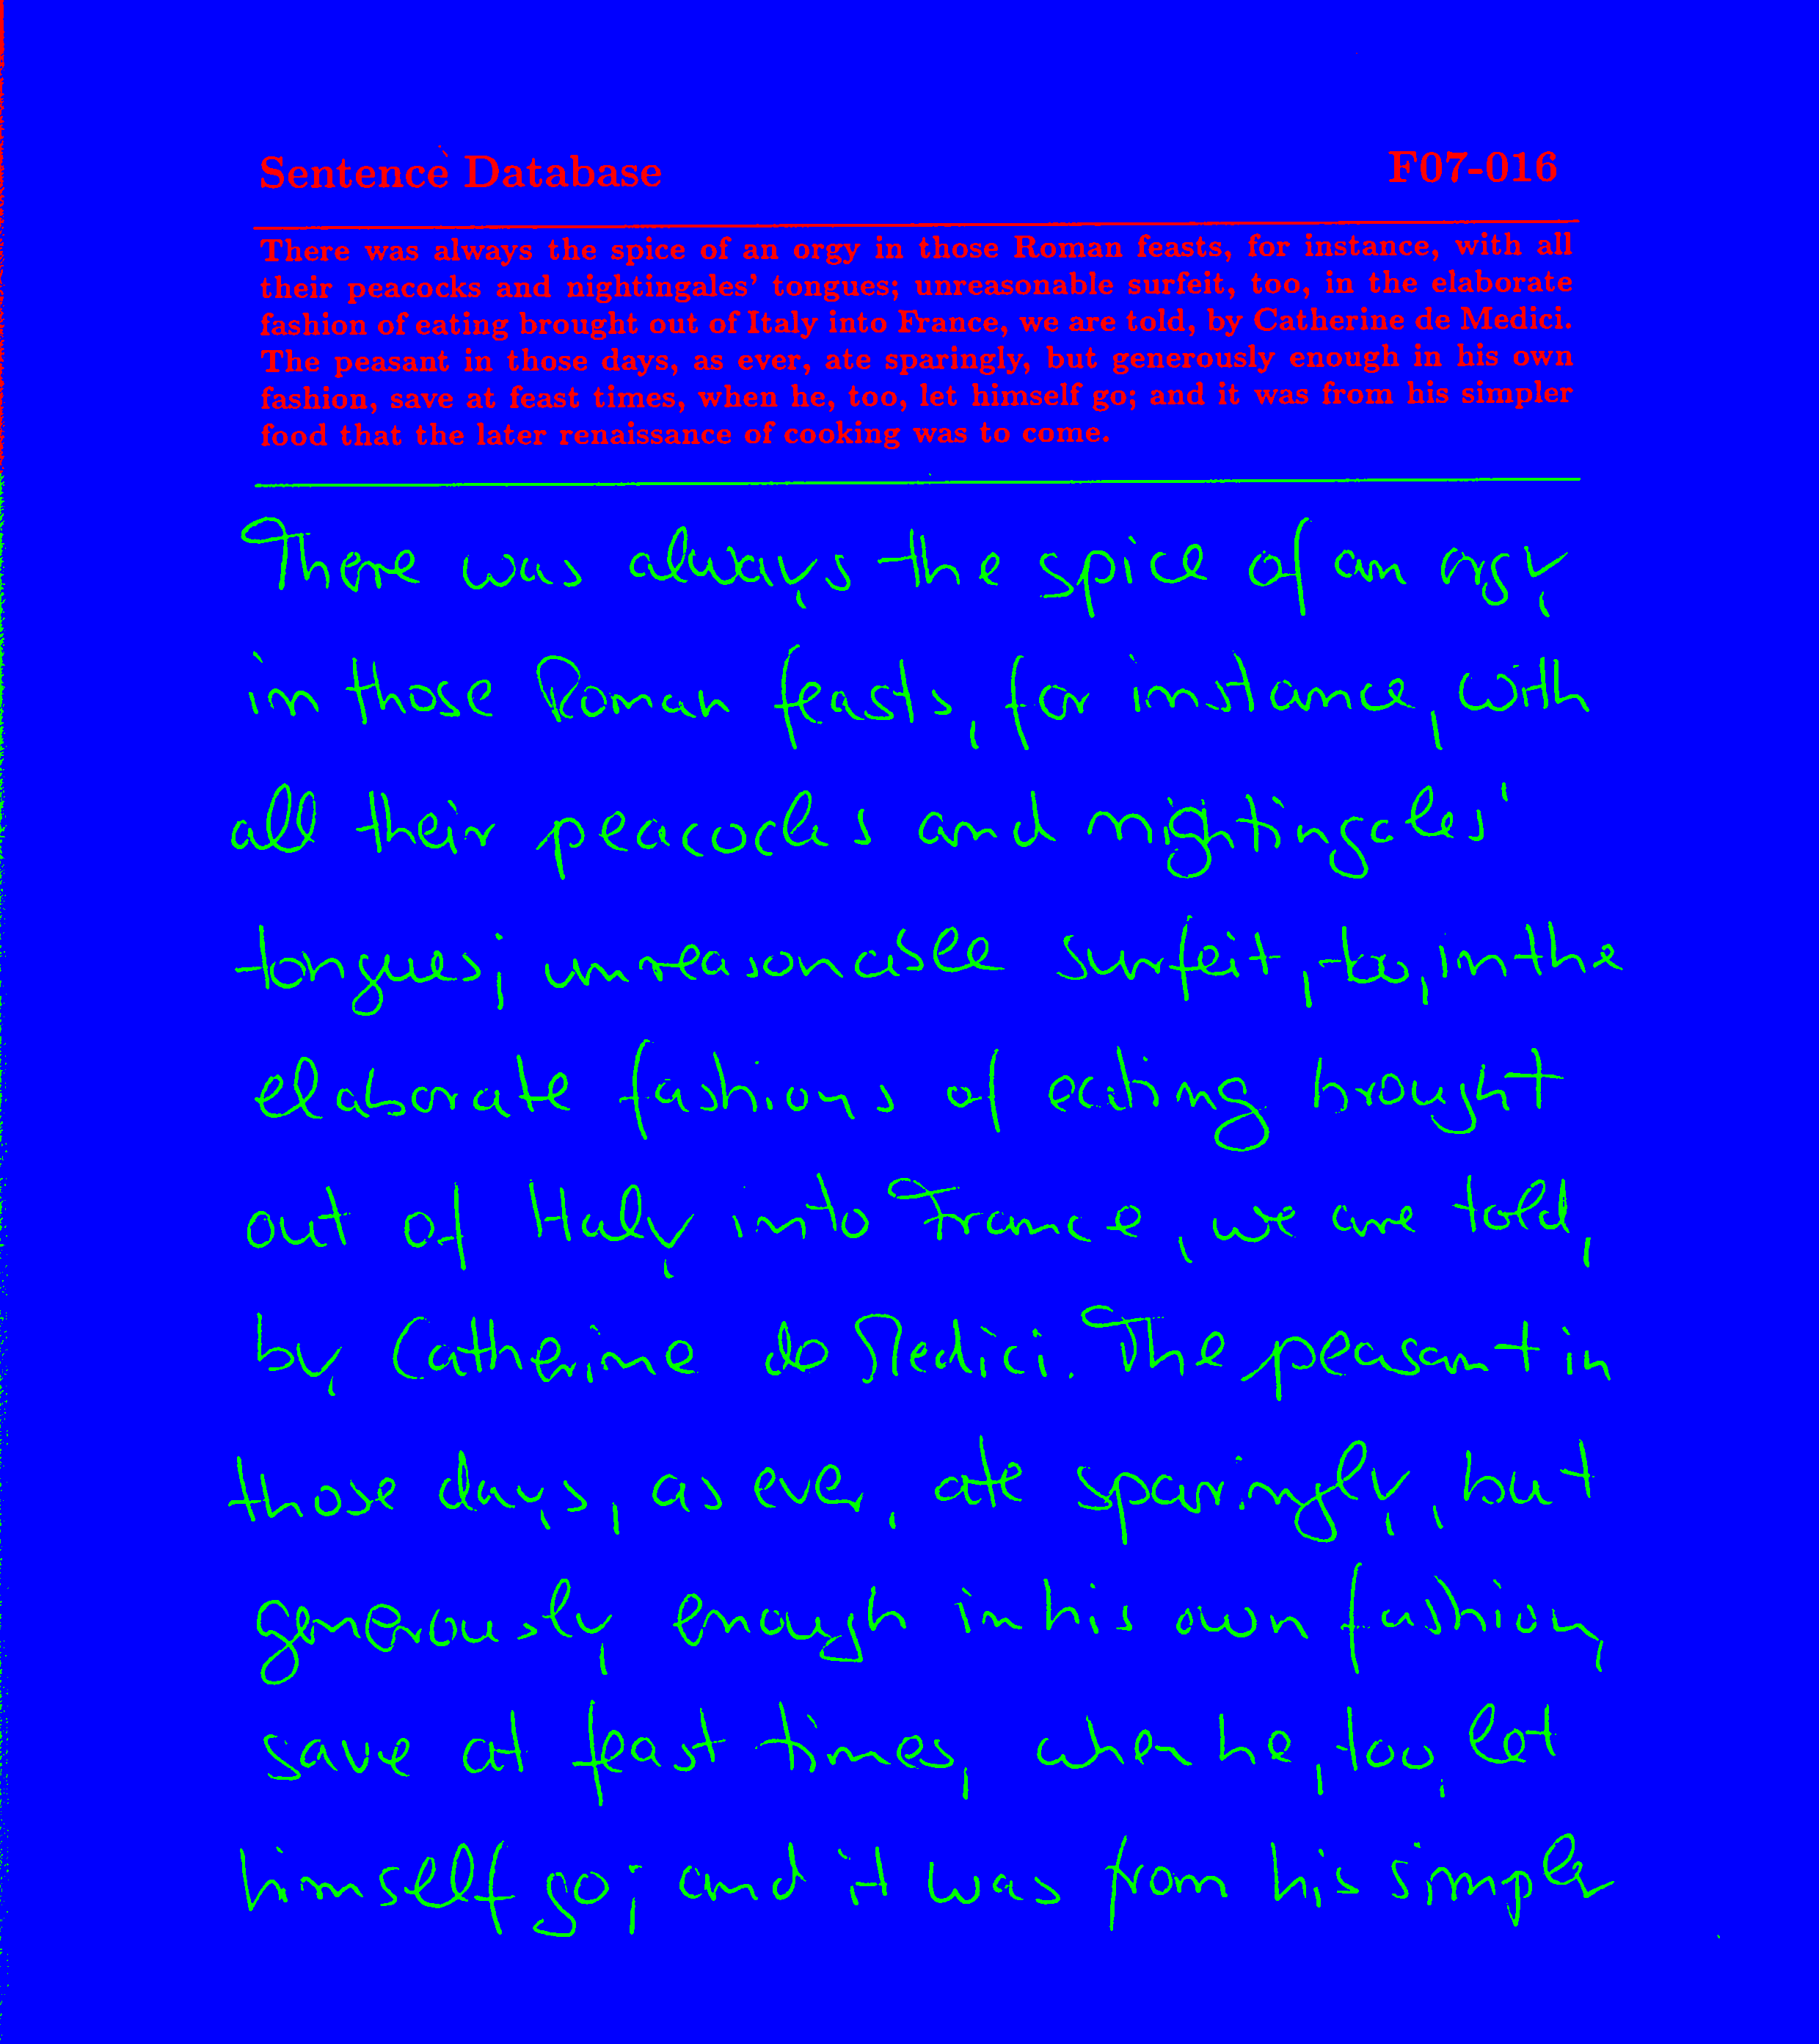 Sentence Database F07-016
There was always the spice of an orgy in those Roman feasts, for instance, with all
their peacocks and nightingales' tongues; unreasonable surfeit, too, in the elaborate
fashion of eating brought out of Italy into France, we are told, by Catherine de Medici.
The peasant in those days, as ever, ate sparingly, but generously enough in his own
fashion, save at feast times, when he, too, let himself go; and it was from his simpler
food that the later renaissance of cooking was to come.
There was always the spice of an orgy
in those Roman feasts, for instance, with
all their peacocks and nightingales'
tongues; unreasonable surfeit, too, in the
elaborate fashions of eating brought
out of Italy into France, we are told,
by Catherine de Medici. The peasant in
those days, as ever, ate sparingly, but
generously enough in his own fashion,
save at feast times, when he, too, let
himself go; and it was from his simpler